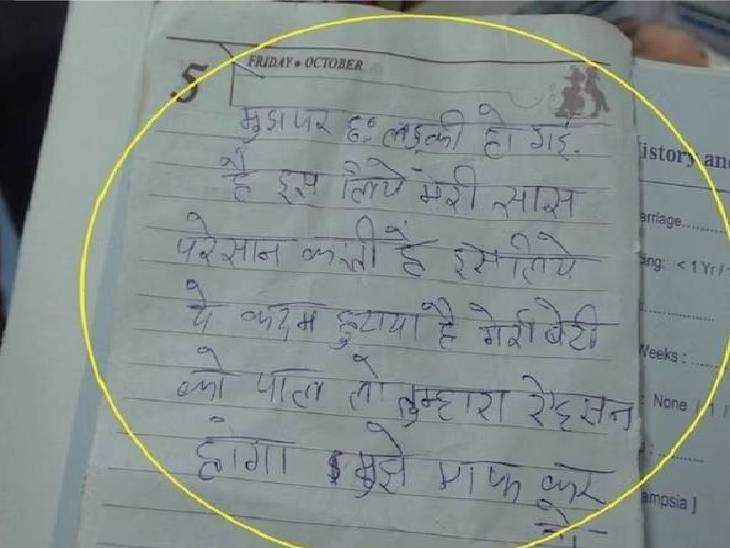 5 FRIDAY • OCTOBER
मुझ पर छः लड़की हो गई.
है इस लिये मेरी सास
परेसान करती है इसलिये
ये कदम हुठाया है मेरी बेटी
को पाल लो तुम्हारा ऐहसान
होगा मुझे माफ कर
istory and
arriage.......
ang: < 1 Yr /
:
Weeks : ......
: None / 1 /
:
ampsia ]